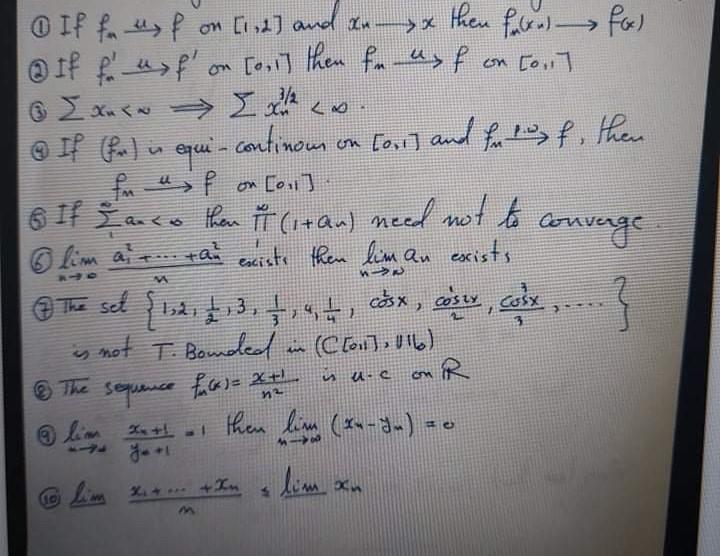 ① If fₙ →ᵘ f on [1,2] and xₙ → x then fₙ(xₙ) → f(x)
② If fₙ' →ᵘ f' on [0,1] then fₙ →ᵘ f on [0,1]
③ Σ xₙ < ∞ ⇒ Σ xₙ^{3/2} < ∞.
④ If (fₙ) is equi-continous on [0,1] and fₙ →^{p.w} f, then
fₙ →ᵘ f on [0,1].
⑤ If Σ₁^∞ aₙ < ∞ then Π₁^∞ (1+aₙ) need not to converge.
⑥ lim_{n→∞} (a₁² + ... + aₙ²)/n exists then lim_{n→∞} aₙ exists
⑦ The set {1, 2, 1/2, 3, 1/3, 4, 1/4, cos²x, cos 2x/2, cos³x/3, ..... }
is not T. Bounded in (C[0,1],
⑧ The sequence fₙ(x) = (x+1)/n² is u.c on ℝ
⑨ lim_{n→∞} (xₙ+1)/(yₙ+1) = 1 then lim_{n→∞} (xₙ - yₙ) = 0
⑩ lim (x₁ + ... + xₙ)/n ≤ lim xₙ